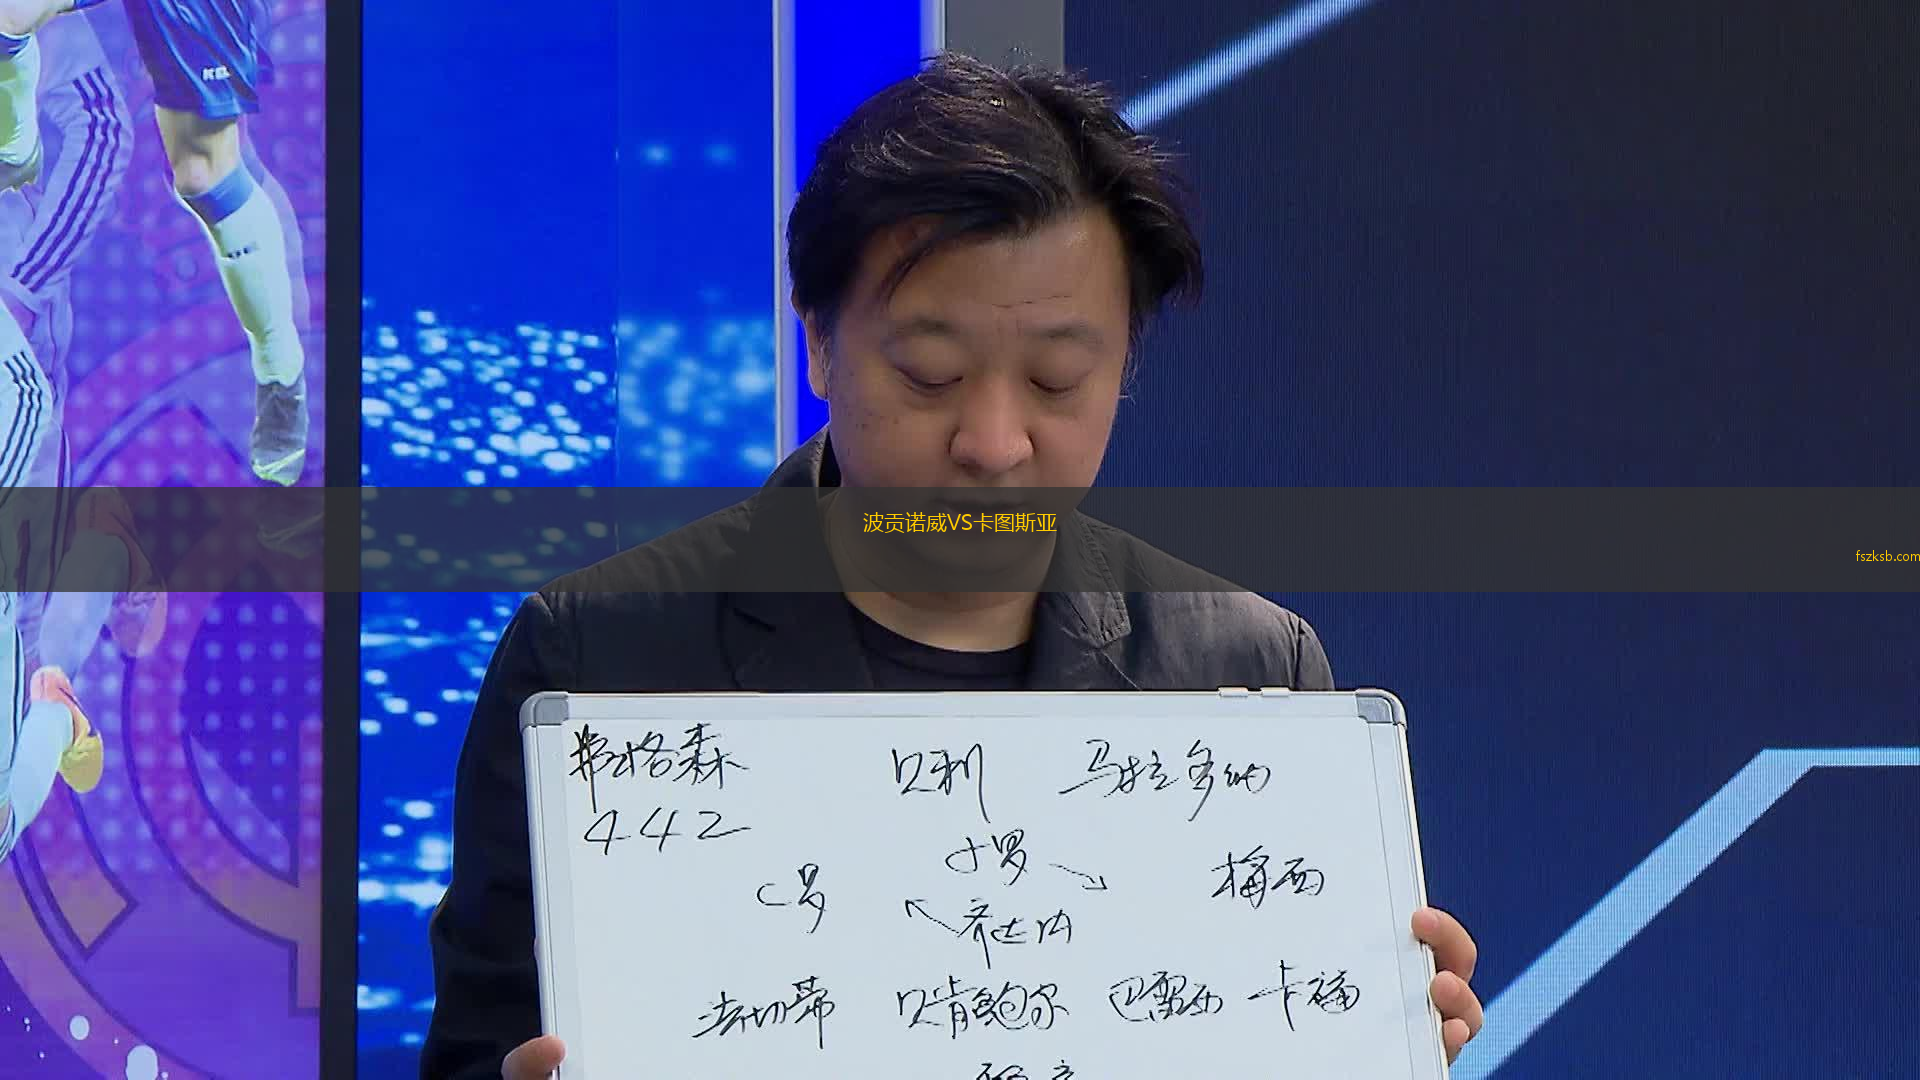 波贡诺威VS卡图斯亚
fszksb.com
弗格森 贝利 马拉多纳
442
小罗
C罗 梅西
齐达内
法切蒂 贝肯鲍尔 巴雷西 卡福